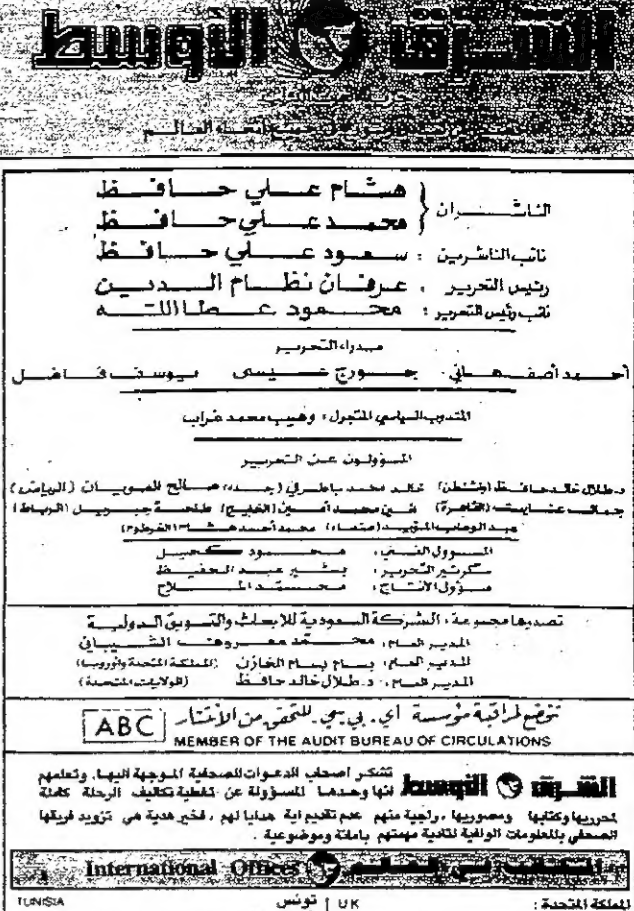 الشرق الأوسط
جريدة العرب الدولية
الناشران
هشام علي حافظ
محمد علي حافظ
نائب الناشرين : سعود علي حافظ
رئيس التحرير : عرفان نظام الدين
نائب رئيس التحرير : محمود عطا الله
مدراء التحرير
أحمد أصفهاني جورج يوسف فاضل
المندوب السياسي المتجول : وهيب محمد غراب
المسؤولون عن التحرير
د.طلال خالد حافظ (واشنطن) خالد محمد باطرفي (جدة) صالح (الرياض)
جمال عنايت (القاهرة) محمد أمين (الخليج) طلحة جبريل (الرباط)
عبد الوهاب المؤيد (صنعاء) محمد أحمد (الخرطوم)
المسؤول الفني : محمود كحيل
سكرتير التحرير : بشير عبد الحفيظ
مسؤول الانتاج : محمد الملاح
تصدرها مجموعة : الشركة السعودية للابحاث والتسويق الدولية
المدير العام : محمد معروف الشيباني
المدير العام : بسام بسام الخازن (المملكة المتحدة واوروبا)
المدير العام : د.طلال خالد حافظ (الولايات المتحدة)
تخضع لمراقبة مؤسسة أي. بي. سي. للتحقق من الانتشار ABC
MEMBER OF THE AUDIT BUREAU OF CIRCULATIONS
الشرق الأوسط تشكر اصحاب الدعوات الصحفية الموجهة اليها، وتعلمهم
انها وحدها المسؤولة عن تغطية تكاليف الرحلة كاملة
لمحرريها وكتابها ومصوريها ، راجية منهم عدم تقديم اية هدايا لهم ، فخير هدية هي تزويد فريقها
الصحفي بالمعلومات الوافية لتادية مهمتهم بامانة وموضوعية .
المكاتب في العالم International Offices
المملكة المتحدة : UK تونس TUNISIA